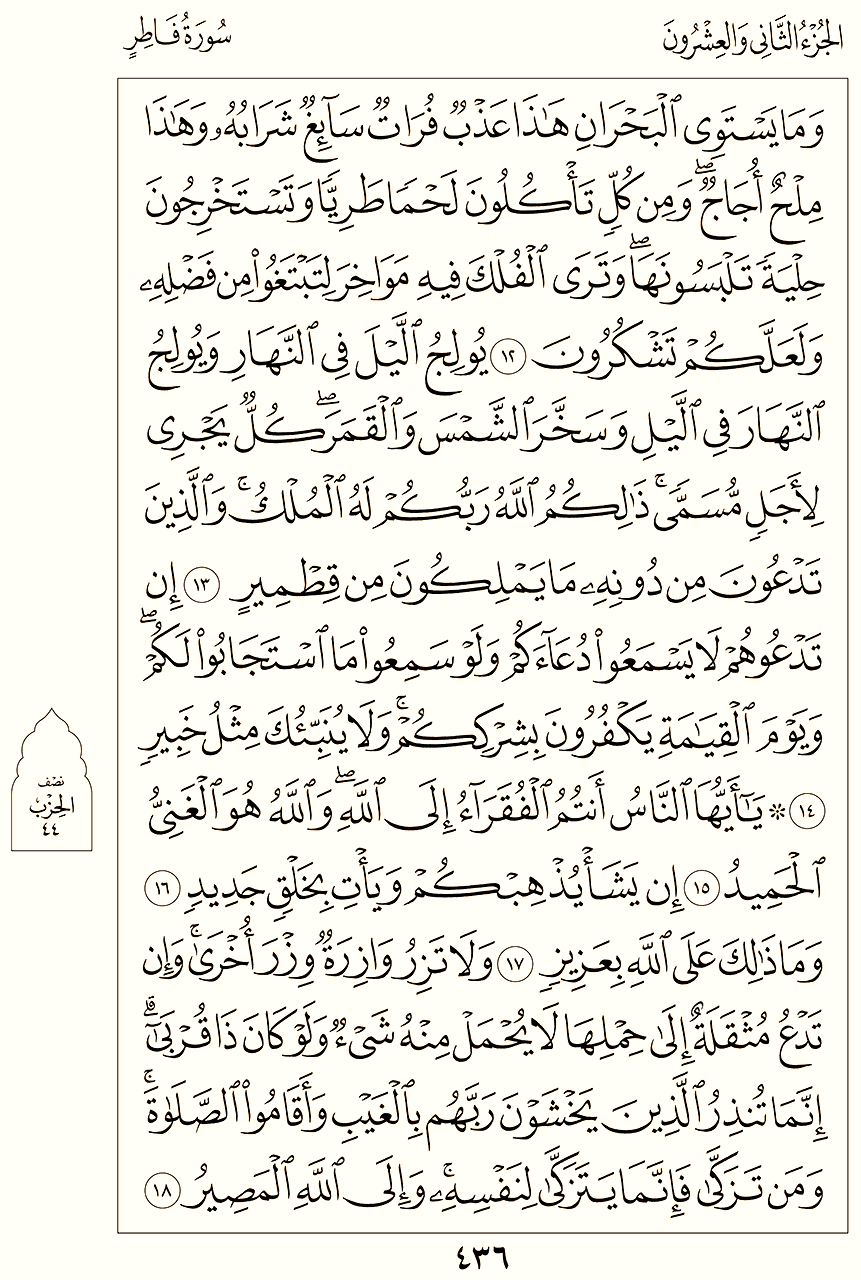 الجُزْءُ الثَّانِي وَالعِشْرُونَ
سُورَةُ فَاطِرٍ
وَمَا يَسْتَوِى ٱلْبَحْرَانِ هَـٰذَا عَذْبٌ فُرَاتٌ سَآئِغٌ شَرَابُهُۥ وَهَـٰذَا
مِلْحٌ أُجَاجٌ ۖ وَمِن كُلٍّ تَأْكُلُونَ لَحْمًا طَرِيًّا وَتَسْتَخْرِجُونَ
حِلْيَةً تَلْبَسُونَهَا ۖ وَتَرَى ٱلْفُلْكَ فِيهِ مَوَاخِرَ لِتَبْتَغُوا۟ مِن فَضْلِهِۦ
وَلَعَلَّكُمْ تَشْكُرُونَ ١٢ يُولِجُ ٱلَّيْلَ فِى ٱلنَّهَارِ وَيُولِجُ
ٱلنَّهَارَ فِى ٱلَّيْلِ وَسَخَّرَ ٱلشَّمْسَ وَٱلْقَمَرَ ۖ كُلٌّ يَجْرِى
لِأَجَلٍ مُّسَمًّى ۚ ذَٰلِكُمُ ٱللَّهُ رَبُّكُمْ لَهُ ٱلْمُلْكُ ۚ وَٱلَّذِينَ
تَدْعُونَ مِن دُونِهِۦ مَا يَمْلِكُونَ مِن قِطْمِيرٍ ١٣ إِن
تَدْعُوهُمْ لَا يَسْمَعُوا۟ دُعَآءَكُمْ وَلَوْ سَمِعُوا۟ مَا ٱسْتَجَابُوا۟ لَكُمْ ۖ
وَيَوْمَ ٱلْقِيَـٰمَةِ يَكْفُرُونَ بِشِرْكِكُمْ ۚ وَلَا يُنَبِّئُكَ مِثْلُ خَبِيرٍ
١٤ ۞ يَـٰٓأَيُّهَا ٱلنَّاسُ أَنتُمُ ٱلْفُقَرَآءُ إِلَى ٱللَّهِ ۖ وَٱللَّهُ هُوَ ٱلْغَنِىُّ
ٱلْحَمِيدُ ١٥ إِن يَشَأْ يُذْهِبْكُمْ وَيَأْتِ بِخَلْقٍ جَدِيدٍ ١٦
وَمَا ذَٰلِكَ عَلَى ٱللَّهِ بِعَزِيزٍ ١٧ وَلَا تَزِرُ وَازِرَةٌ وِزْرَ أُخْرَىٰ ۚ وَإِن
تَدْعُ مُثْقَلَةٌ إِلَىٰ حِمْلِهَا لَا يُحْمَلْ مِنْهُ شَىْءٌ وَلَوْ كَانَ ذَا قُرْبَىٰٓ ۗ
إِنَّمَا تُنذِرُ ٱلَّذِينَ يَخْشَوْنَ رَبَّهُم بِٱلْغَيْبِ وَأَقَامُوا۟ ٱلصَّلَوٰةَ ۚ
وَمَن تَزَكَّىٰ فَإِنَّمَا يَتَزَكَّىٰ لِنَفْسِهِۦ ۚ وَإِلَى ٱللَّهِ ٱلْمَصِيرُ ١٨
نصف
الحزب
٤٤
٤٣٦